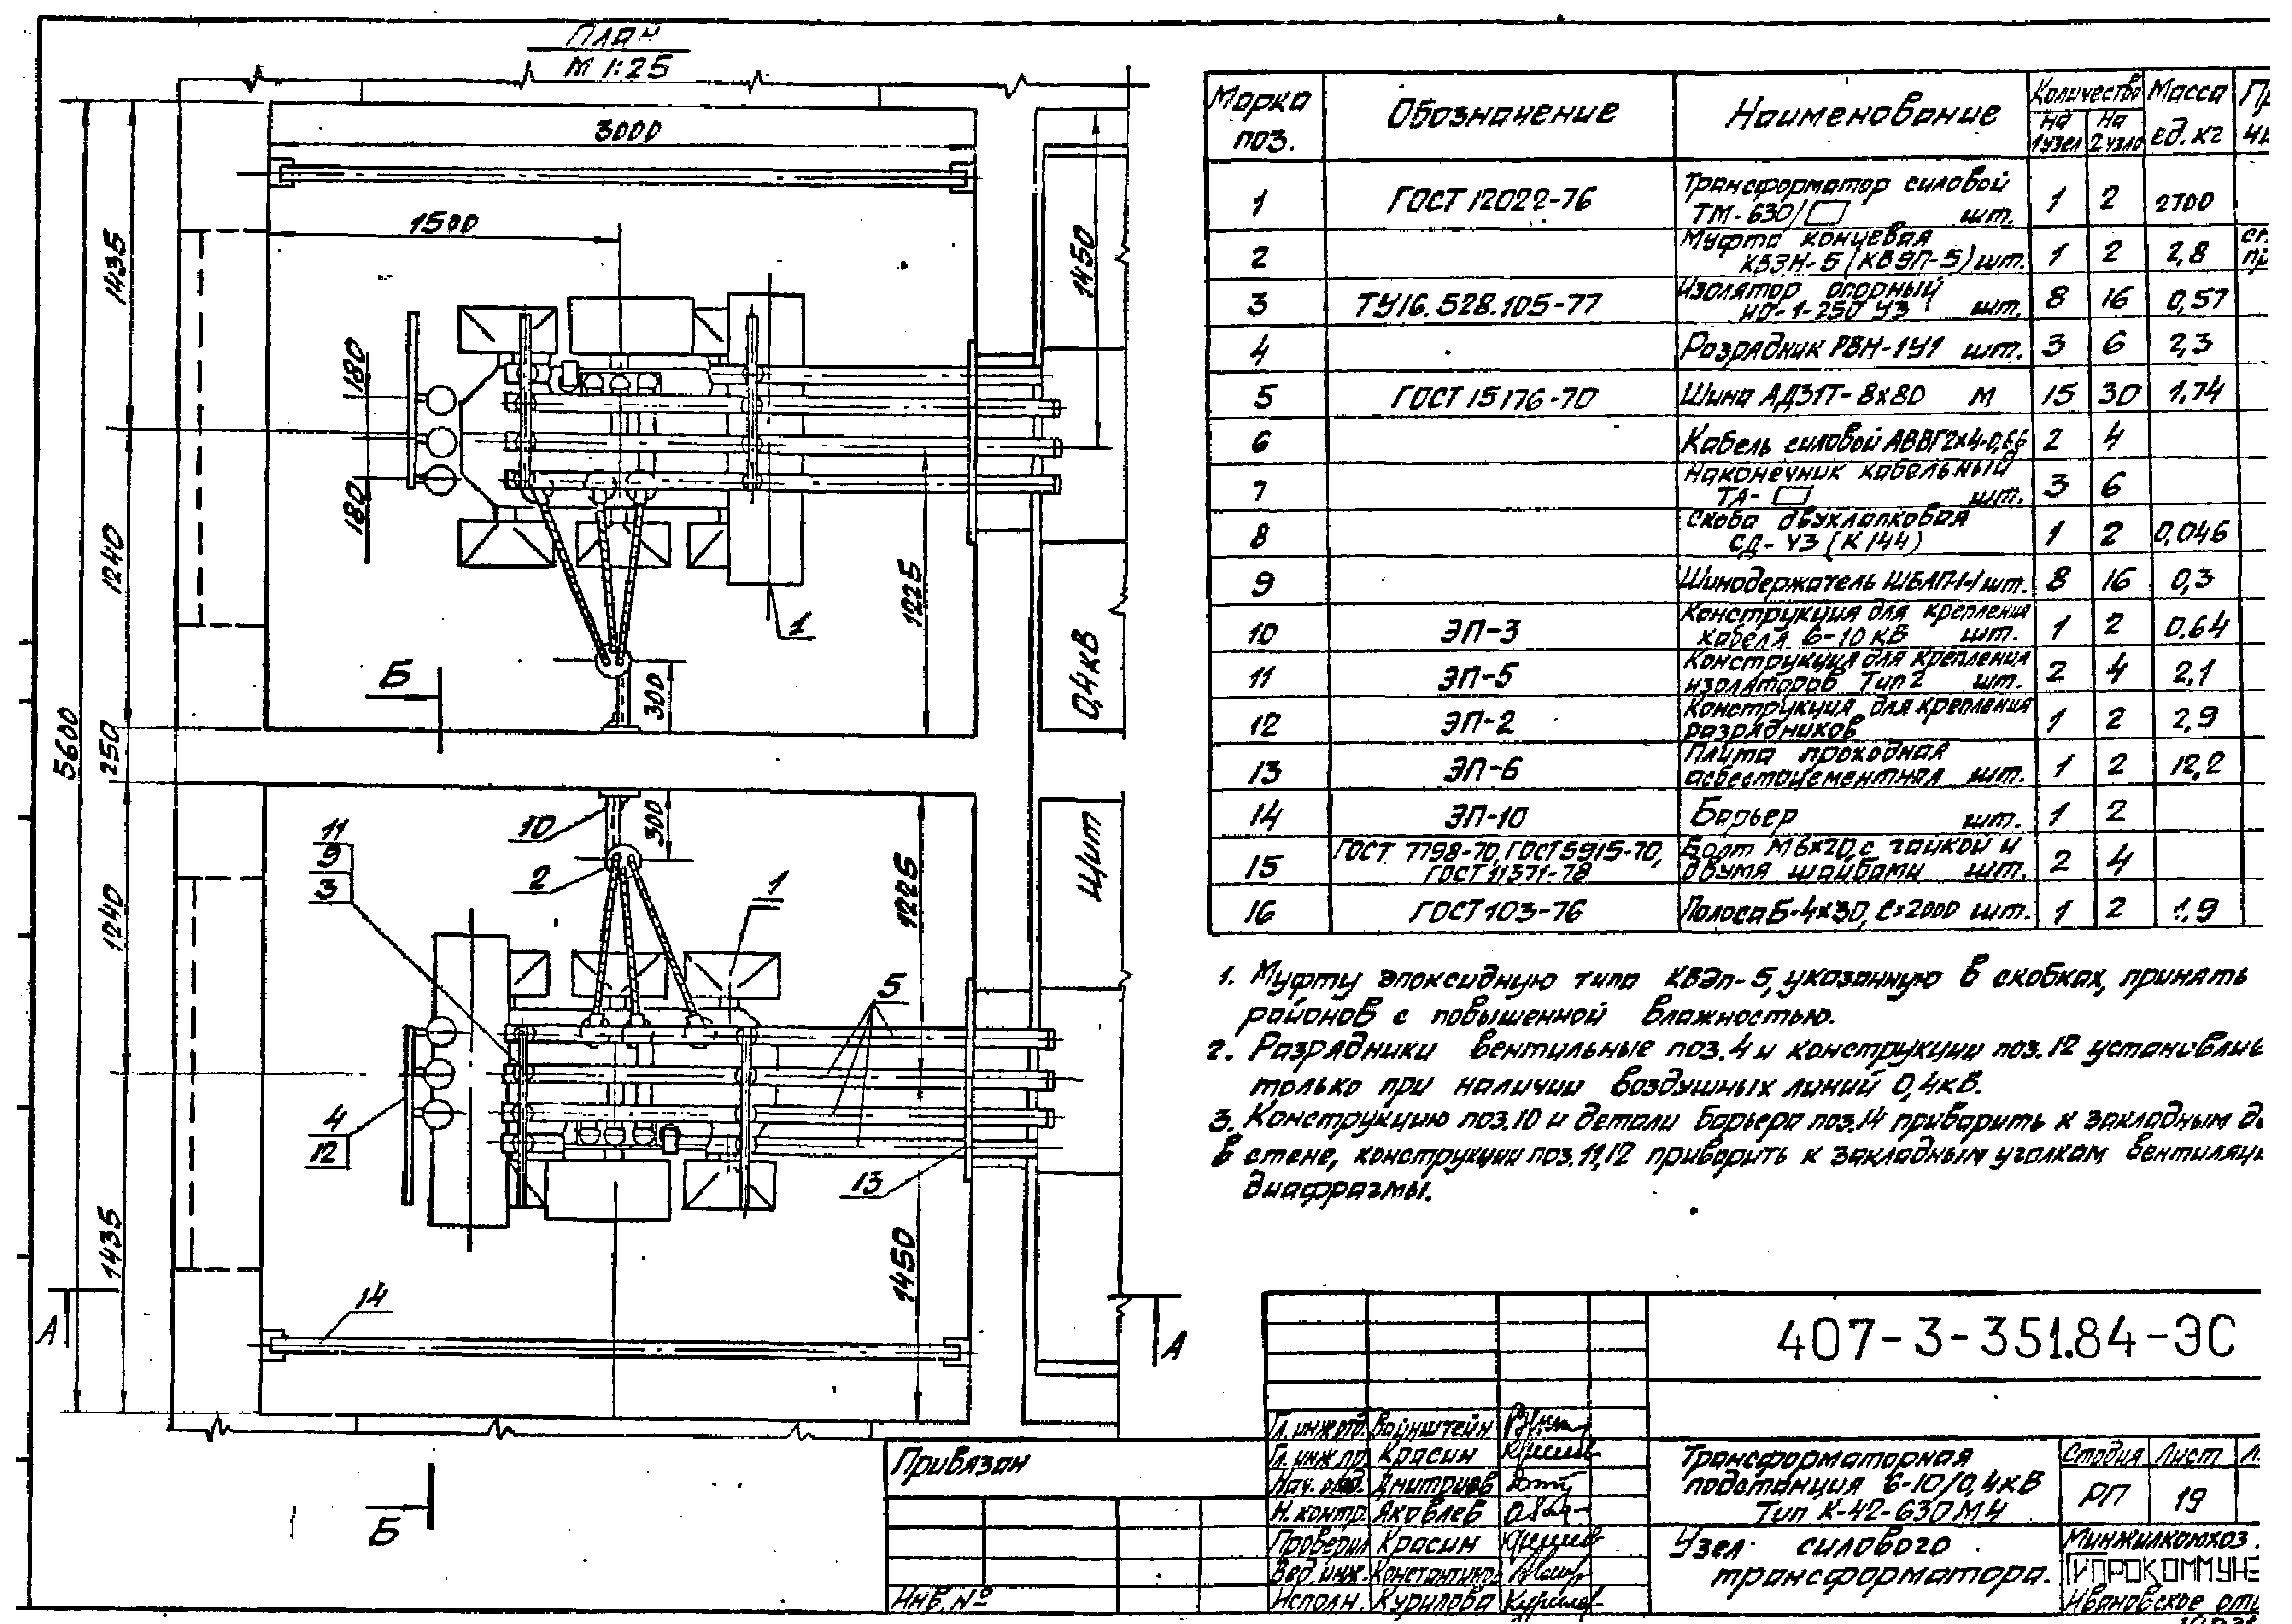 План
М 1:25
3000
1500
1435
1450
180
180
1240
1225
1
Б
300
0,4кВ
5600
250
10
300
11
9
3
2
1
Щит
1240
1225
5
4
12
13
1435
1450
14
А
А
Б
Марка поз.
Обозначение
Наименование
Количество
на 1узел
на 2 узла
Масса ед. кг
1 ГОСТ 12022-76 Трансформатор силовой ТМ-630/ шт. 1 2 2700
2 Муфта концевая КВЗН-5 (КВЭП-5) шт. 1 2 2,8
3 ТУ16.528.105-77 Изолятор опорный ИО-1-250 У3 шт. 8 16 0,57
4 Разрядник РВН-1У1 шт. 3 6 2,3
5 ГОСТ 15176-70 Шина АД31Т-8х80 м 15 30 1,74
6 Кабель силовой АВВГ2х4-0,66 2 4
7 Наконечник кабельный ТА- шт. 3 6
8 Скоба двухлапковая СД-У3 (К144) 1 2 0,046
9 Шинодержатель шт. 8 16 0,3
10 ЭП-3 Конструкция для крепления кабеля 6-10 кВ шт. 1 2 0,64
11 ЭП-5 Конструкция для крепления изоляторов Тип 2 шт. 2 4 2,1
12 ЭП-2 Конструкция для крепления разрядников 1 2 2,9
13 ЭП-6 Плита проходная асбестоцементная шт. 1 2 12,2
14 ЭП-10 Барьер шт. 1 2
15 ГОСТ 7798-70, ГОСТ 5915-70, ГОСТ 11371-78 Болт М6х20 с гайкой и двумя шайбами шт. 2 4
16 ГОСТ 103-76 Полоса Б-4х30, ℓ=2000 шт. 1 2 1,9
1. Муфту эпоксидную типа КВЭп-5, указанную в скобках, принять
районов с повышенной влажностью.
2. Разрядники вентильные поз. 4 и конструкции поз. 12
только при наличии воздушных линий 0,4кВ.
3. Конструкцию поз. 10 и детали барьера поз. 14 приварить к закладным
в стене, конструкции поз. 11,12 приварить к закладным уголкам
диафрагмы.
407-3-351.84-ЭС
Вайнштейн
Гл. инж. пр. Красин
Нач. отд. Дмитриев
Н. контр. Яковлев
Проверил Красин
Вед. инж.
Исполн. Курилова
Привязан
Инв. №
Трансформаторная
подстанция 6-10/0,4кВ
Тип К-42-630 М4
Стадия Лист
РП 19
Узел силового
трансформатора.
Минжилкомхоз
Ивановское